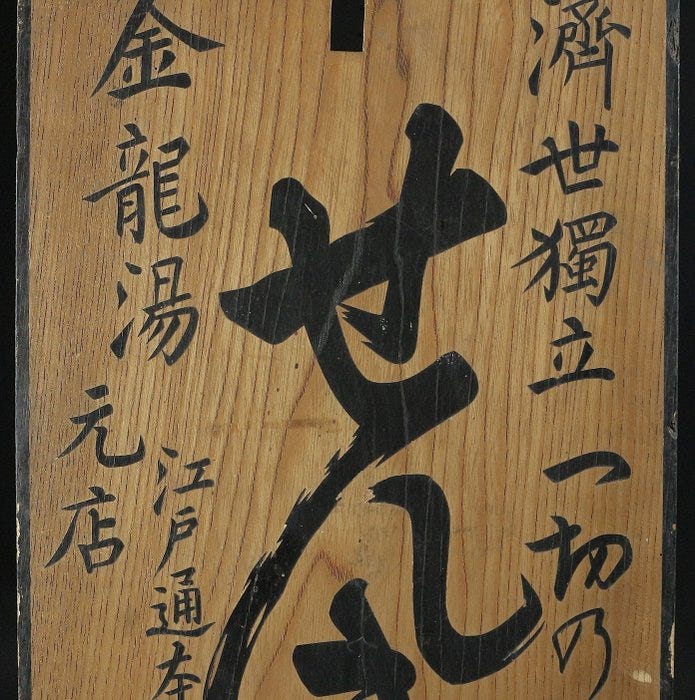 濟世獨立 一切の
せん
金龍湯 元店
江戸通本